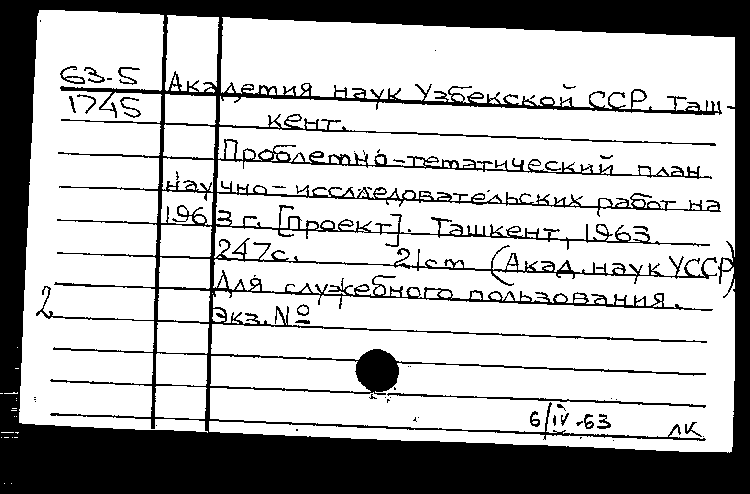 63-5 Академия наук Узбекской ССР. Таш-
1745 кент.
Проблемно-тематический план
научно-исследовательских работ на
1963 г. [проект]. Ташкент, 1963.
247с. 21cm (Акад. наук УССР)
Для служебного пользования.
2 Экз. №
6/IV-63 ЛК